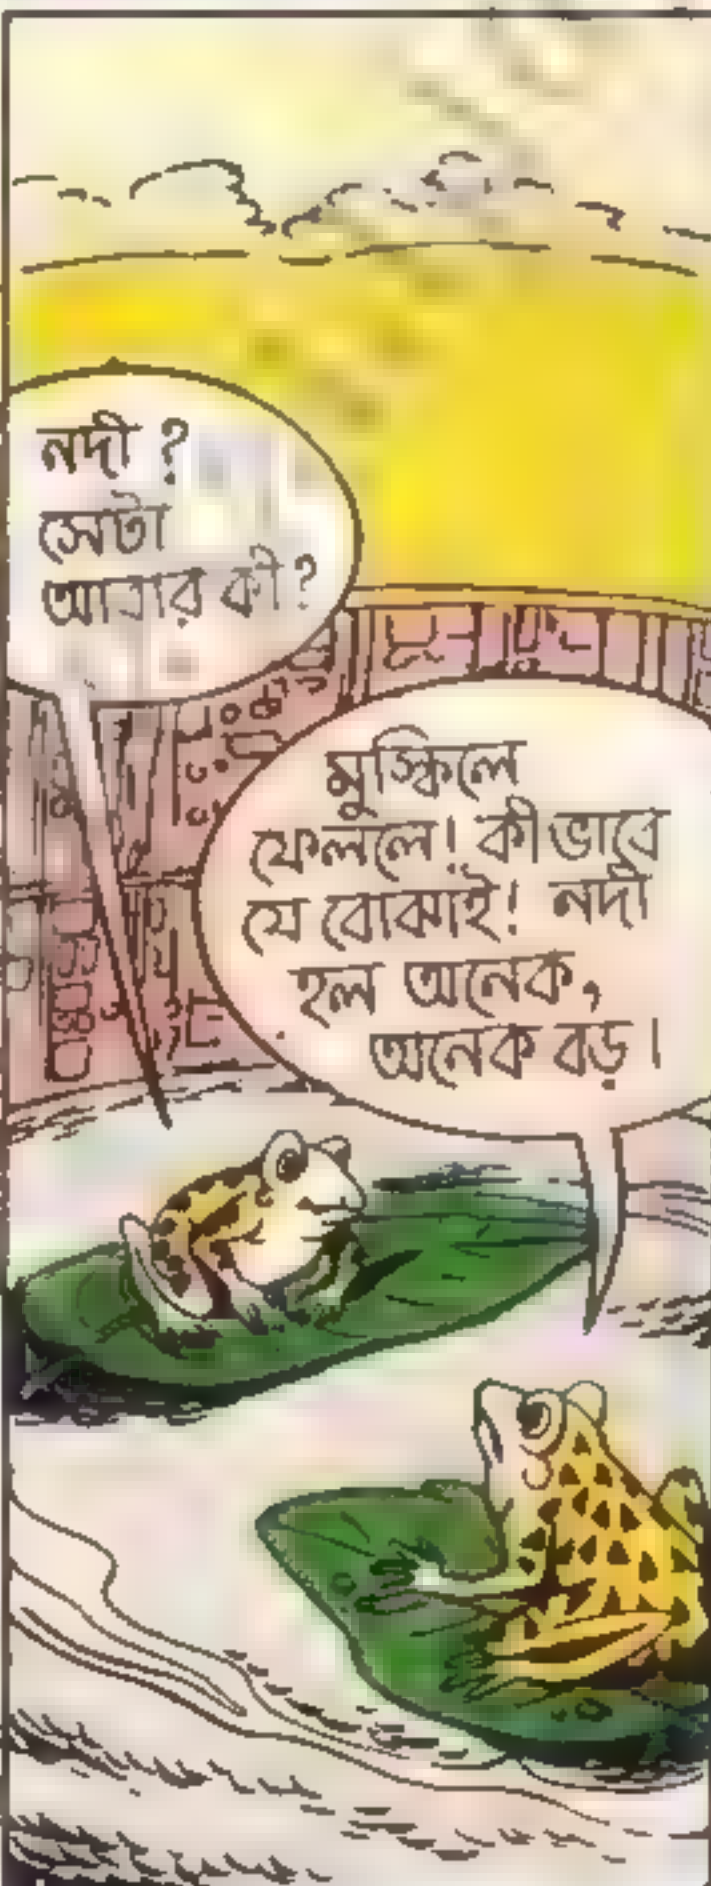 নদী ?
সেটা
আবার কী?
মুস্কিলে
ফেললে! কী ভাবে
যে বোঝাই! নদী
হল অনেক,
অনেক বড়।